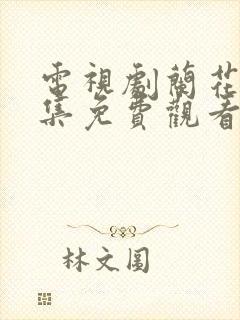 電視劇蘭花
集免費觀看
林文圓